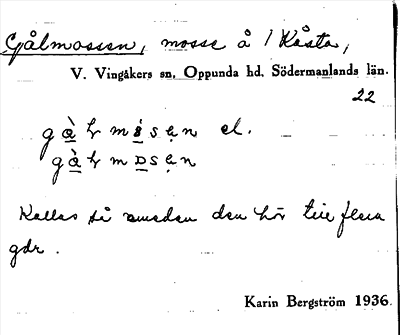 Gålmossen, mosse å 1 Kåsta,
V. Vingåkers sn. Oppunda hd. Södermanlands län.
22
el.
Kallas så emedan den hör till flera
gdr.
Karin Bergström 1936